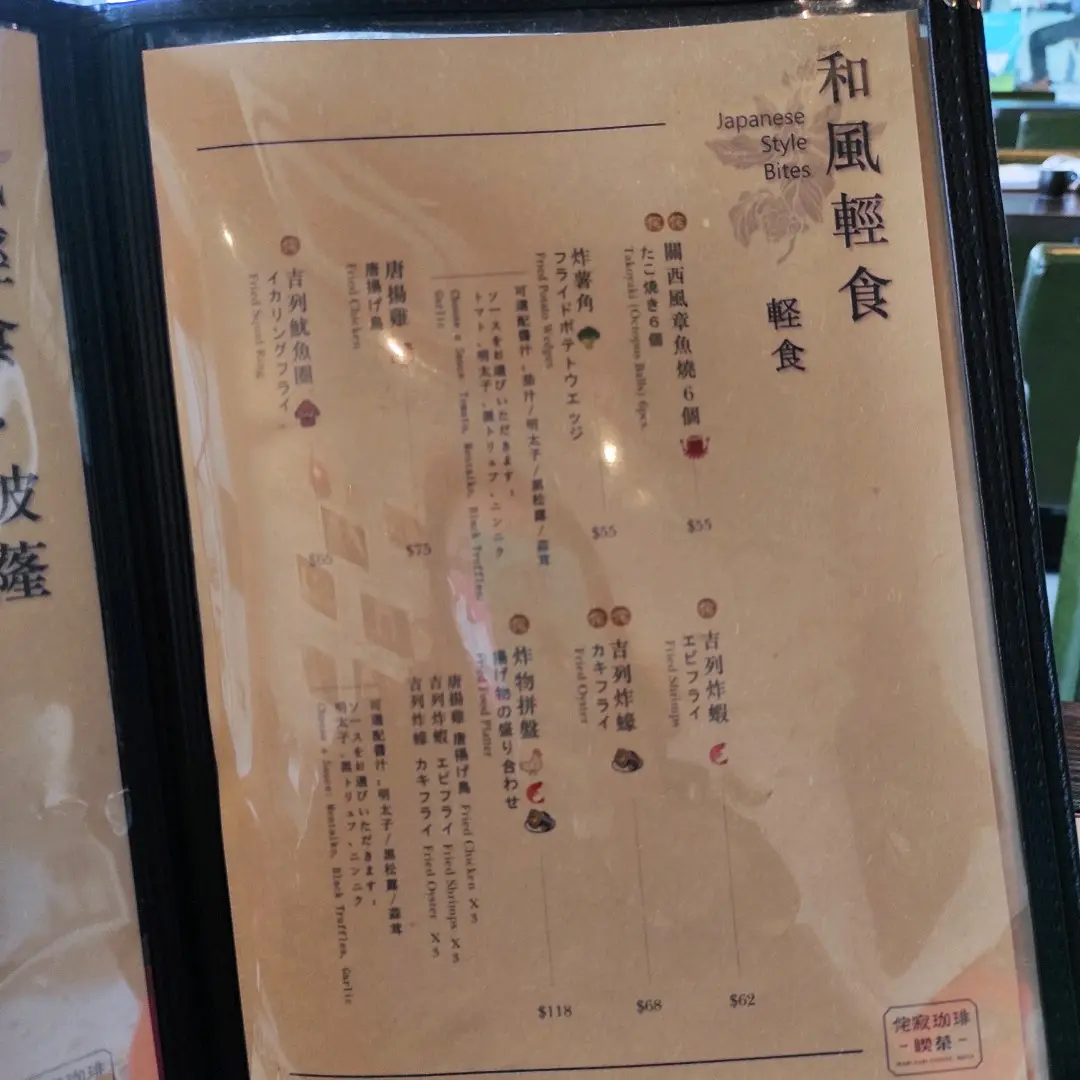 和風輕食
Japanese
Style
Bites
軽食
侘
侘
關西風章魚燒6個
たこ焼き6個
Takoyaki (Octopus Balls) 6pcs.
$55
炸薯角
フライドポテトウエッジ
Fried Potato Wedges
$55
可選配醬汁:茄汁/明太子/黑松露/蒜茸
ソースをお選びいただきます:
トマト、明太子、黒トリュフ、ニンニク
Choose a Sauce: Tomato, Mentaiko, Black Truffles,
Garlic
唐揚雞
唐揚げ鳥
Fried Chicken
$75
吉列魷魚圈
イカリングフライ
Fried Squid Ring
吉列炸蝦
エビフライ
Fried Shrimps
$62
吉列炸蠔
カキフライ
Fried Oyster
$68
炸物拼盤
揚げ物の盛り合わせ
Fried Food Platter
$118
唐揚雞 唐揚げ鳥 Fried Chicken X3
吉列炸蝦 エビフライ Fried Shrimps X3
吉列炸蠔 カキフライ Fried Oyster X3
可選配醬汁:明太子/黑松露/蒜茸
ソースをお選びいただきます:
明太子、黒トリュフ、ニンニク
Choose a Sauce: Mentaiko, Black Truffles, Garlic
侘寂珈琲
-喫茶-
食・披薩
珈琲